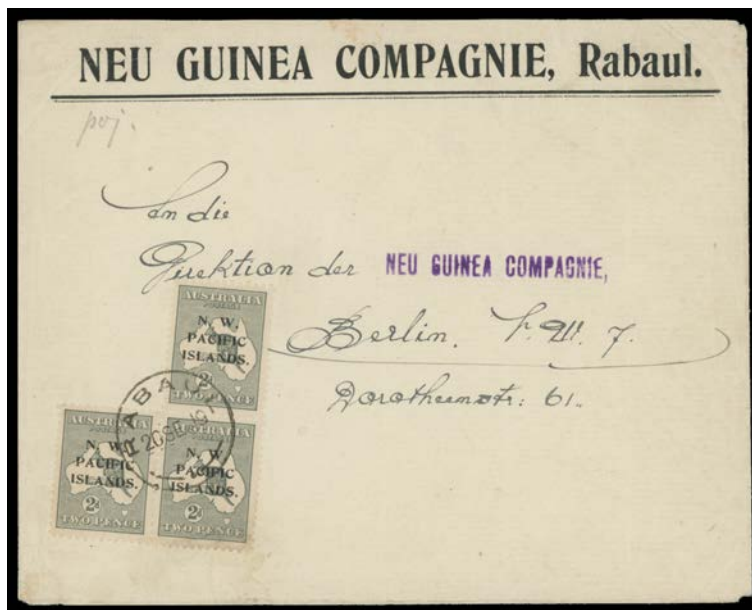 NEU GUINEA COMPAGNIE, Rabaul.
An die
Direktion der NEU GUINEA COMPAGNIE,
Berlin. N.W. 7.
Dorotheenstr: 61.
AUSTRALIA
POSTAGE
N. W.
PACIFIC
ISLANDS.
2D
TWO PENCE
RABAUL
20 SE 19
AUSTRALIA
POSTAGE
N. W.
PACIFIC
ISLANDS.
2D
TWO PENCE
AUSTRALIA
POSTAGE
N. W.
PACIFIC
ISLANDS.
2D
TWO PENCE